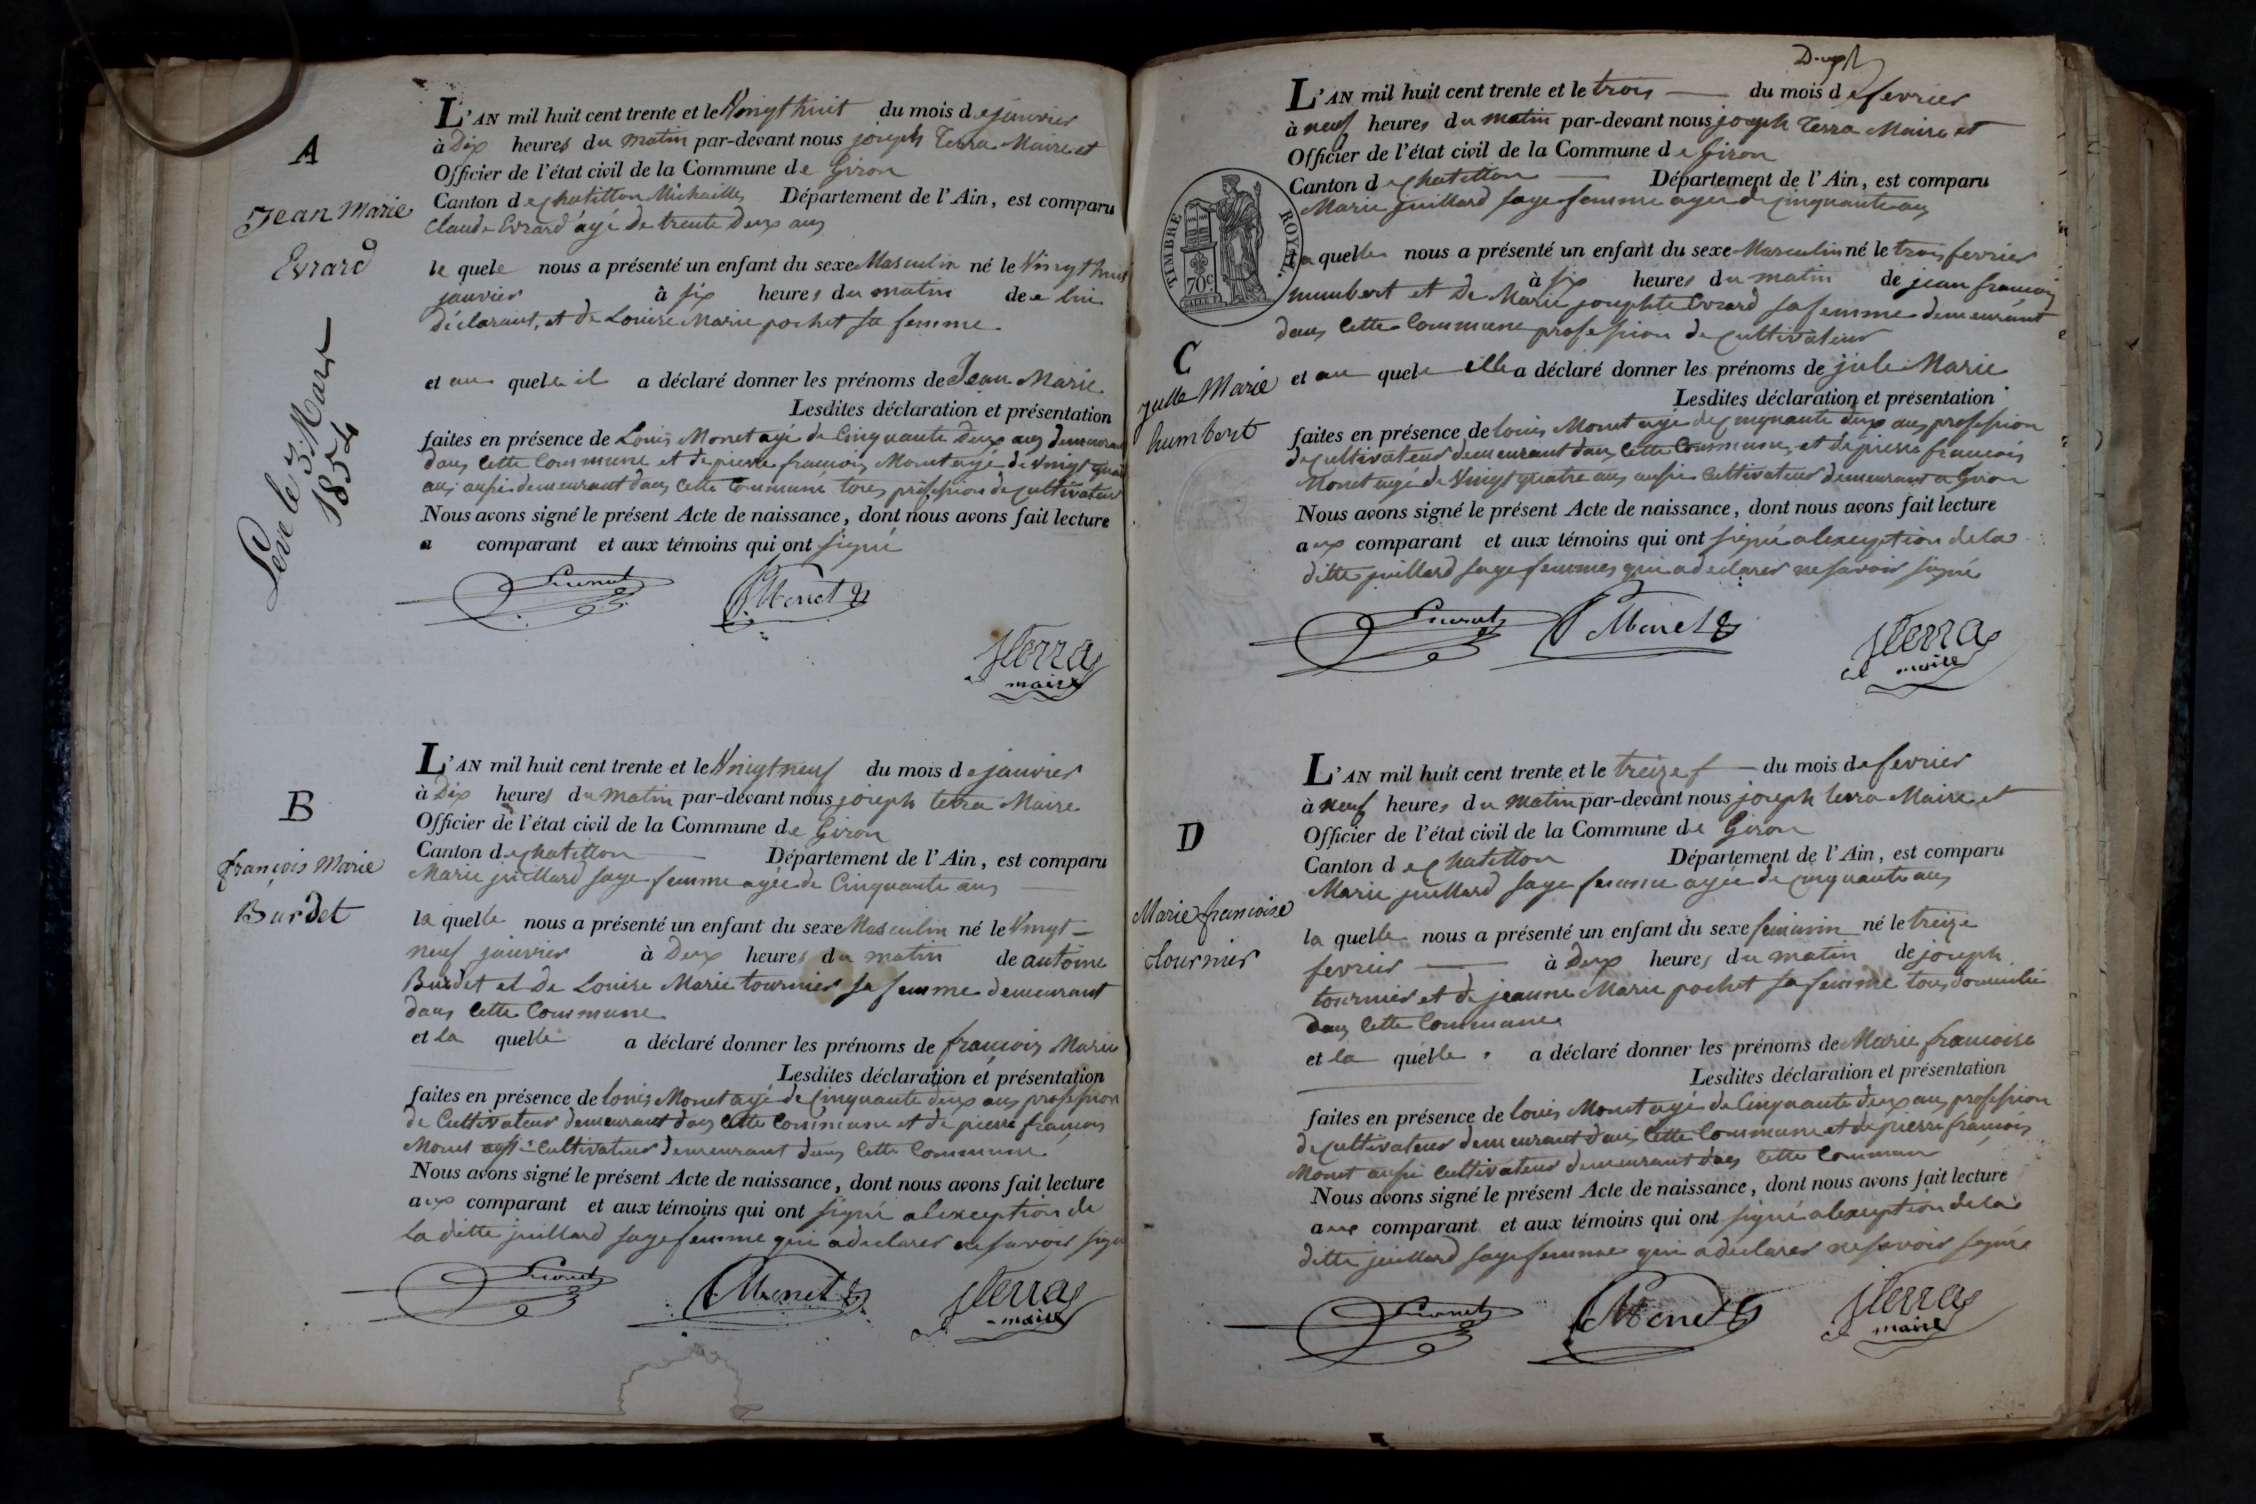 A
Jean Marie
Evrard
Levé le 3 Mars
1854
L'AN mil huit cent trente et le Vingt huit du mois de janvier
à Dix heures du matin par-devant nous joseph Terra Maire et
Officier de l'état civil de la Commune de Giron
Canton de Chatillon Michaille Département de l'Ain, est comparu
Claude Evrard âgé de trente Deux ans
le quele nous a présenté un enfant du sexe Masculin né le Vingt huit
janvier à six heures du matin de lui
déclarant, et de Louise Marie pochet sa femme
et au quele il a déclaré donner les prénoms de Jean Marie
Lesdites déclaration et présentation
faites en présence de Louis Monet agé de Cinquante Deux ans demeurant
dans cette Commune et de pierre francois Monet agé de vingt quatre
ans aussi demeurant dans cette Commune tous profession de cultivateur
Nous avons signé le présent Acte de naissance, dont nous avons fait lecture
a comparant et aux témoins qui ont signé
Monet
Terra
maire
B
françois Marie
Burdet
L'AN mil huit cent trente et le Vingt neuf du mois de janvier
à Dix heures du matin par-devant nous joseph terra Maire
Officier de l'état civil de la Commune de Giron
Canton de Chatillon Département de l'Ain, est comparu
Marie juillard sage femme agée de Cinquante ans
la quelle nous a présenté un enfant du sexe Masculin né le Vingt
neuf janvier à Deux heures du matin de antoine
Burdet et de Louise Marie tournier sa femme demeurant
dans cette Commune
et la quelle a déclaré donner les prénoms de françois Marie
Lesdites déclaration et présentation
faites en présence de louis Monet agé de Cinquante deux ans profession
de Cultivateur demeurant dans cette Commune et de pierre françois
Monet aussi cultivateur demeurant dans cette Commune
Nous avons signé le présent Acte de naissance, dont nous avons fait lecture
aux comparant et aux témoins qui ont signé alexception de
la ditte juillard sage femme qui a declarer ne savoir signé
Monet
Monet
Terra
maire
L'AN mil huit cent trente et le trois du mois de fevrier
à neuf heures du matin par-devant nous joseph Terra Maire et
Officier de l'état civil de la Commune de Giron
Canton de Chatillon Département de l'Ain, est comparu
Marie juillard sage femme agée de cinquante ans
TIMBRE ROYAL
70c.
la quelle nous a présenté un enfant du sexe Masculin né le trois fevrier
à six heures du matin de jean francois
humbert et De Marie josephte Evrard sa femme demeurant
dans cette Commune profession de cultivateur
C
Jule Marie
humbert
et au quele elle a déclaré donner les prénoms de jule Marie
Lesdites déclaration et présentation
faites en présence de louis Monet agé de cinquante deux ans profession
de cultivateur demeurant dans cette Commune, et de pierre francois
Monet agé de Vingt quatre ans aussi cultivateur demeurant a Giron
Nous avons signé le présent Acte de naissance, dont nous avons fait lecture
aux comparant et aux témoins qui ont signé alexception de la
ditte juillard sage femme qui a declarer ne savoir signé
Monet
Monet
Terra
maire
D
Marie francoise
tournier
L'AN mil huit cent trente et le treize du mois de fevrier
à neuf heures du matin par-devant nous joseph terra Maire et
Officier de l'état civil de la Commune de Giron
Canton de Chatillon Département de l'Ain, est comparu
Marie juillard sage femme agée de cinquante ans
la quelle nous a présenté un enfant du sexe feminin né le treize
fevrier à deux heures du matin de joseph
tournier et de jeanne Marie pochet sa femme tous domicilié
dans cette Commune
et la quelle a déclaré donner les prénoms de Marie francoise
Lesdites déclaration et présentation
faites en présence de louis Monet agé de Cinquante deux ans profession
de cultivateur demeurant dans cette Commune et de pierre francois
Monet aussi cultivateur demeurant dans cette Commune
Nous avons signé le présent Acte de naissance, dont nous avons fait lecture
aux comparant et aux témoins qui ont signé alexception de la
ditte juillard sage femme qui a declarer ne savoir signé
Monet
Monet
Terra
maire